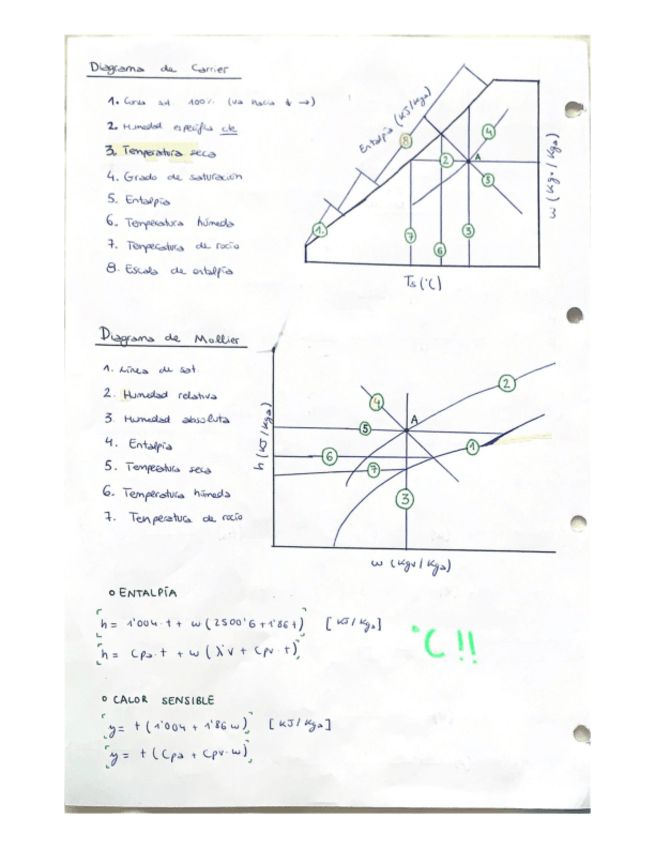 Diagrama de Carrier
1. Curva sat 100%. (va hacia ↓ →)
2. Humedad específica cte
3. Temperatura seca
4. Grado de saturación
5. Entalpía
6. Temperatura húmeda
7. Temperatura de rocío
8. Escala de entalpía
Entalpía (KJ/Kga)
8
4
2
A
5
1.
7
6
3
w (Kgv / Kga)
Ts (°C)
Diagrama de Mollier
1. Línea de sat.
2. Humedad relativa
3. Humedad absoluta
4. Entalpía
5. Temperatura seca
6. Temperatura húmeda
7. Temperatura de rocío
h (KJ / Kga)
2
4
A
5
1
6
7
3
w (Kgv / Kga)
o ENTALPÍA
h = 1'004·t + w (2500'6 + 1'86 t) [KJ / Kga]
h = Cpa·t + w (λv + Cpv·t)
°C !!
o CALOR SENSIBLE
y = t (1'004 + 1'86 w) [KJ / Kga]
y = t (Cpa + Cpv·w)